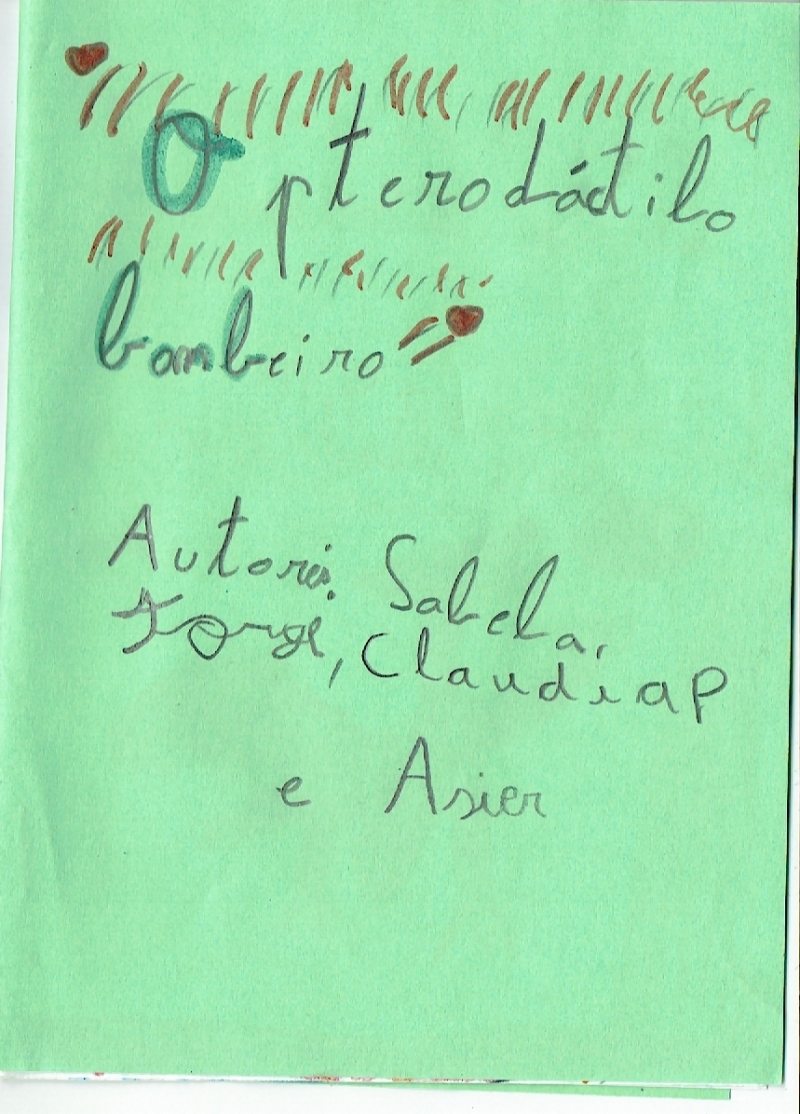 O pterodáctilo
bombeiro
Autores, Sabela,
Jorge, Claudia P
e Asier